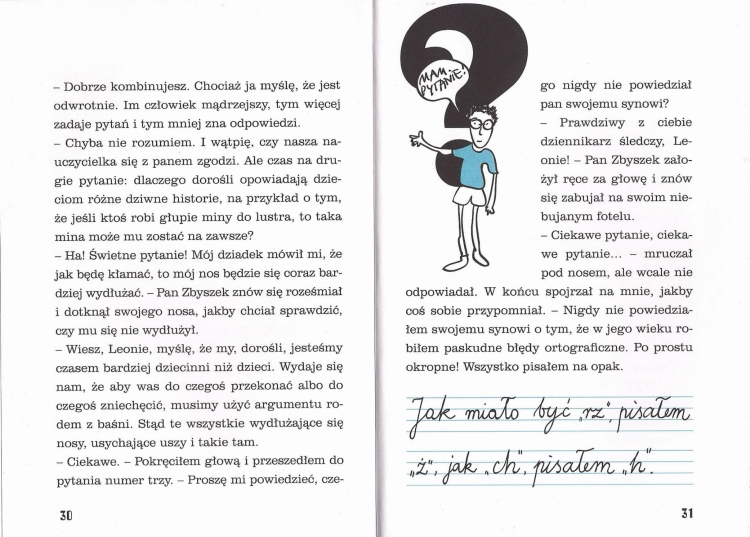 – Dobrze kombinujesz. Chociaż ja myślę, że jest
odwrotnie. Im człowiek mądrzejszy, tym więcej
zadaje pytań i tym mniej zna odpowiedzi.
– Chyba nie rozumiem. I wątpię, czy nasza na-
uczycielka się z panem zgodzi. Ale czas na dru-
gie pytanie: dlaczego dorośli opowiadają dzie-
ciom różne dziwne historie, na przykład o tym,
że jeśli ktoś robi głupie miny do lustra, to taka
mina może mu zostać na zawsze?
– Ha! Świetne pytanie! Mój dziadek mówił mi, że
jak będę kłamać, to mój nos będzie się coraz bar-
dziej wydłużać. – Pan Zbyszek znów się roześmiał
i dotknął swojego nosa, jakby chciał sprawdzić,
czy mu się nie wydłużył.
– Wiesz, Leonie, myślę, że my, dorośli, jesteśmy
czasem bardziej dziecinni niż dzieci. Wydaje się
nam, że aby was do czegoś przekonać albo do
czegoś zniechęcić, musimy użyć argumentu ro-
dem z baśni. Stąd te wszystkie wydłużające się
nosy, usychające uszy i takie tam.
– Ciekawe. – Pokręciłem głową i przeszedłem do
pytania numer trzy. – Proszę mi powiedzieć, cze-
30
MAM
PYTANIE!
go nigdy nie powiedział
pan swojemu synowi?
– Prawdziwy z ciebie
dziennikarz śledczy, Le-
onie! – Pan Zbyszek zało-
żył ręce za głowę i znów
się zabujał na swoim nie-
bujanym fotelu.
– Ciekawe pytanie, cieka-
we pytanie... – mruczał
pod nosem, ale wcale nie
odpowiadał. W końcu spojrzał na mnie, jakby
coś sobie przypomniał. – Nigdy nie powiedzia-
łem swojemu synowi o tym, że w jego wieku ro-
biłem paskudne błędy ortograficzne. Po prostu
okropne! Wszystko pisałem na opak.
Jak miało być „rz”, pisałem
„ż”, jak „ch”, pisałem „h”.
31